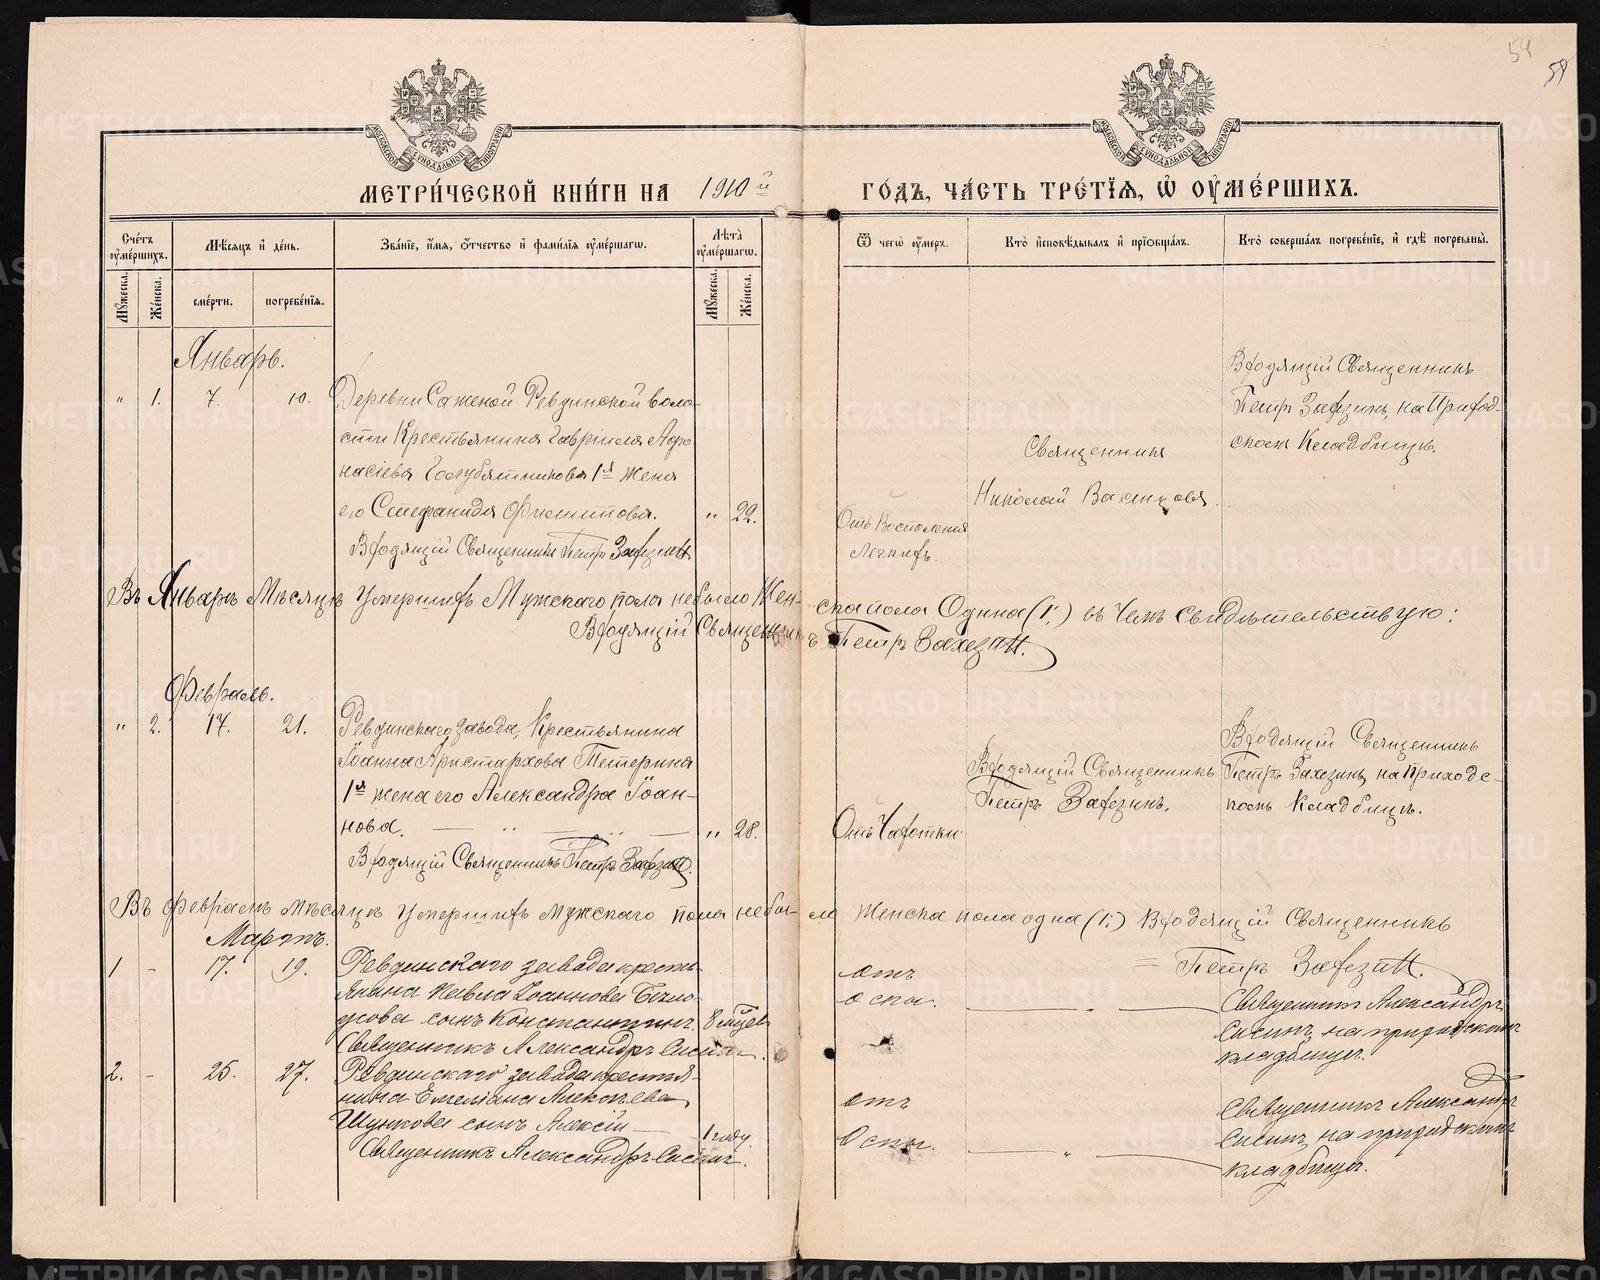 54
59
МЕТРИ́ЧЕСКОЙ КНИ́ГИ НА 1910 й ГО́ДЪ, ЧА́СТЬ ТРЕ́ТЇѦ, Ѡ҆ ОУ҆МЕ́РШИХЪ.
Сче́тъ оу҆ме́ршихъ.
Мꙋ́жеска.
Же́нска.
Мѣ́сѧцъ и҆ де́нь.
сме́рти.
погребе́нїѧ.
Зва́нїе, и҆́мѧ, ѻ҆́тчество и҆ фами́лїѧ оу҆ме́ршагѡ.
Лѣ̀та̀ оу҆ме́ршагѡ.
Мꙋ́жеска.
Же́нска.
Ѿ чегѡ̀ оу҆́меръ.
Кто̀ и҆сповѣ́дывалъ и҆ прїѡбща́лъ.
Кто̀ соверша́лъ погребе́нїе, и҆ гдѣ̀ погребены̀.
Январь.
" 1. 7. 10.
Деревни Саженой Ревдинской воло-
сти Крестьянина Гавріила Афо
насіева Голубятникова 1я Жена
его Стефанида Филиппова. " 22.
Входящій Священникъ Петръ Захезин
Отъ Воспаленія
Легкихъ.
Священникъ
Николай
Входящій Священникъ
Петръ на Приход-
скомъ Кладбищѣ.
Въ Январѣ Мѣсяцѣ Умершихъ Мужскаго пола небыло Жен-ска пола Одина (1.) въ Чемъ Свидѣтельствую:
Входящій Священникъ Петръ
Февраль.
" 2. 17. 21.
Ревдинскаго завода, Крестьянина
Іоанна Аристархова Тетерина
1я жена его Александра Іоан-
нова. — " — " — " 28.
Входящій Священникъ Петръ
Отъ Чахотки
Входящій Священникъ
Петръ
Входящій Священникъ
Петръ на Приходс-
комъ Кладбищѣ.
Въ Февралѣ Мѣсяцѣ Умершихъ Мужскаго пола небы-ло Женска пола одна (1.) Входящій Священникъ
= Петръ
Мартъ.
1 - 17. 19.
Ревдинскаго завода кресть-
янина Павла Іоаннова
сынъ Константинъ 8 мцев
Священникъ Александръ
отъ
оспы.
— " —
Священникъ Александръ
на приходскомъ
кладбищѣ.
2. - 25. 27.
Ревдинскаго завода крестья-
нина Емеліана Алексѣева
Шумкова сынъ Алексій — 1 году.
Священникъ Александръ
отъ
Оспы.
— " —
Священникъ Александръ
на приходскомъ
кладбищѣ.
METRIKI.GASO-URAL.RU